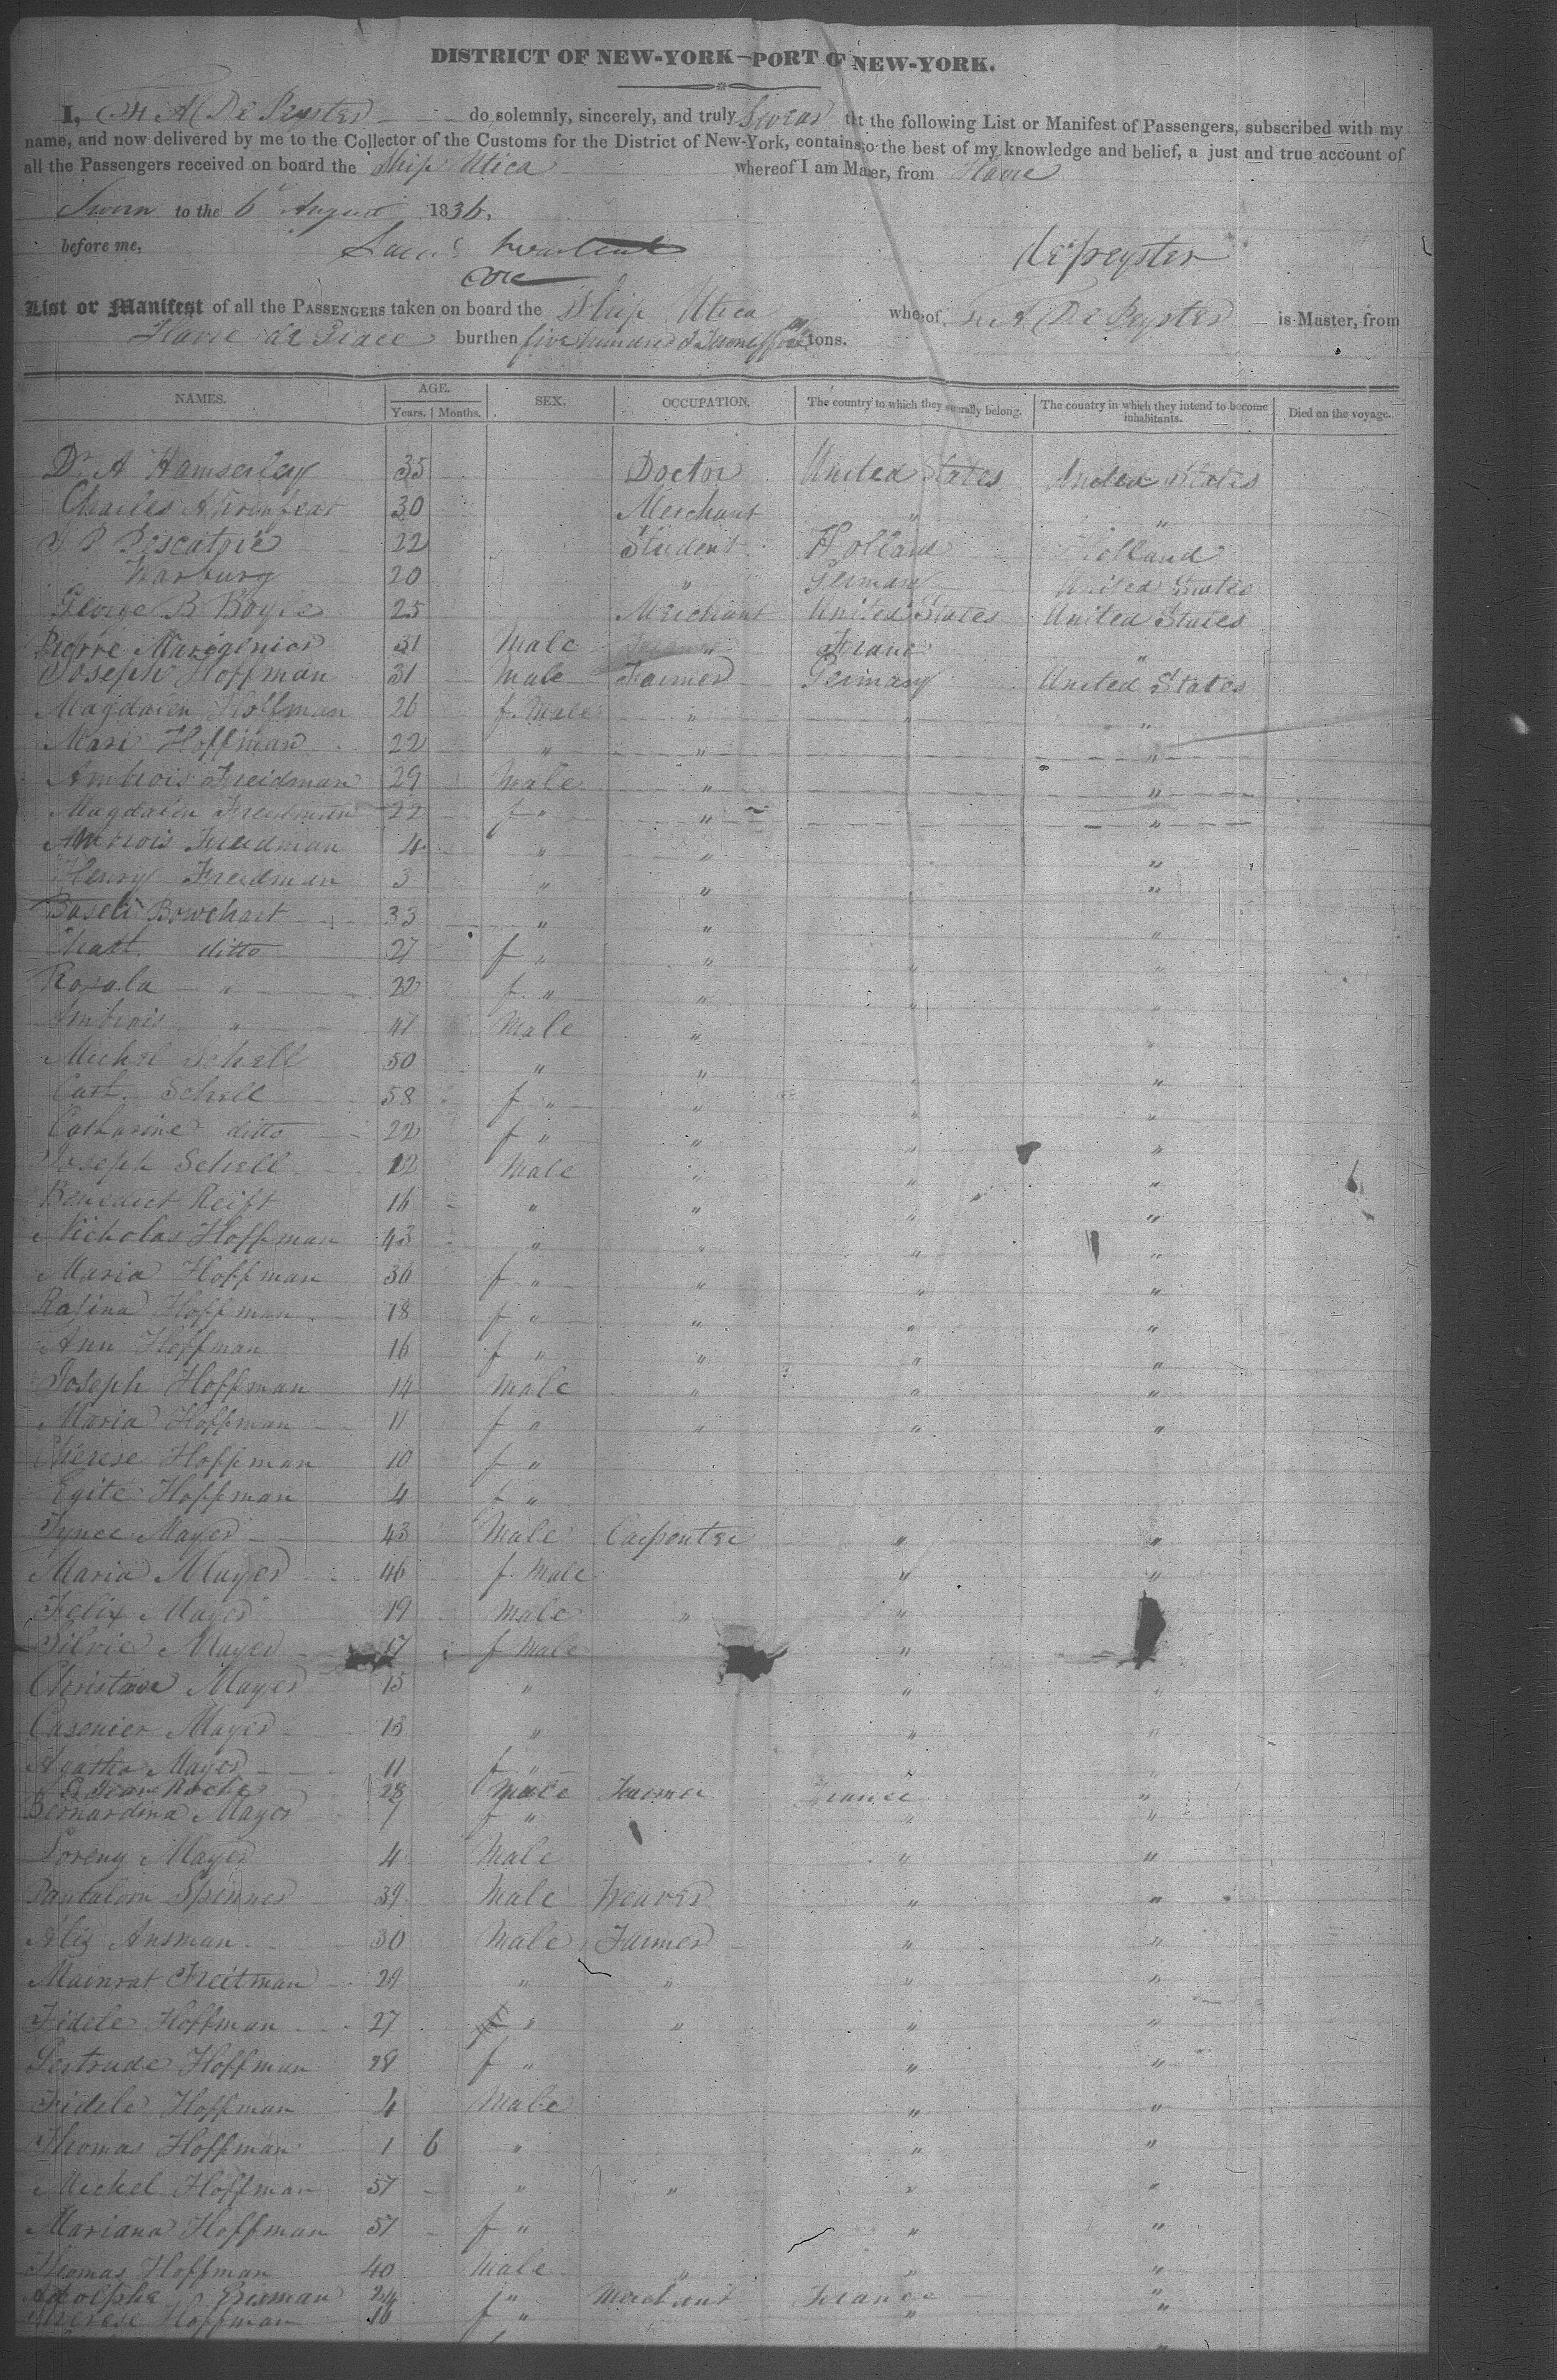 DISTRICT OF NEW-YORK—PORT OF NEW-YORK.
I, F. A. De Peyster do solemnly, sincerely, and truly Swear that the following List or Manifest of Passengers, subscribed with my
name, and now delivered by me to the Collector of the Customs for the District of New-York, contains, to the best of my knowledge and belief, a just and true account of
all the Passengers received on board the Ship Utica whereof I am Master, from Havre
Sworn to the 6 August 1836.
before me,
De Peyster
List or Manifest of all the PASSENGERS taken on board the Ship Utica whereof F. A. De Peyster is Master, from
Havre de Grace burthen five hundred & twenty tons.
NAMES. AGE. SEX. OCCUPATION. The country to which they severally belong. The country in which they intend to become inhabitants. Died on the voyage.
Years. Months.
Dr. A Hamserley 35 Doctor United States United States
Charles 30 Merchant " "
P Pescatore 22 Student Holland Holland
Warburg 20 " German United States
George B Boyle 25 Merchant United States United States
Pierre 31 Male " France "
Joseph Hoffman 31 Male Farmer Germany United States
Magdalen Hoffman 26 f. Male " " "
Mari Hoffman 22 " " "
Ambrois Freidman 29 Male " "
Magdalen Freidman 22 f " " "
Ambrois Freedman 4 " " "
Henry Freedman 3 " " "
Baseli Bowchart 33 " " "
ditto 27 f " " " "
Rosala " 22 f. " " " "
Ambrois " 47 Male " "
Michel Schell 50 " " " "
Cath. Schell 58 f " " " "
Catharine ditto 22 f " " " "
Joseph Schell 12 Male " " "
Benedict Reift 16 " " " "
Nicholas Hoffman 43 " " " "
Maria Hoffman 36 f " " " "
Rasina Hoffman 18 f " " " "
Ann Hoffman 16 f " " " "
Joseph Hoffman 14 Male " " "
Maria Hoffman 11 f " " " "
Therese Hoffman 10 f "
Egite Hoffman 4 f "
Mayer 43 Male Carpenter " "
Maria Mayer 46 f. Male " "
Felix Mayer 19 Male " "
Silvie Mayer 17 f Male "
Christine Mayer 15 " " "
Mayer 13 " " "
Agatha Mayer 11 f "
Jean Roche 28 Male Farmer France "
Bernardina Mayer 7 f " " "
Lorenz Mayer 4 Male " "
Pantaloni Spinner 39 Male Weaver " "
Ansman 30 Male Farmer " "
Mainrat Freitman 29 " " " "
Fidele Hoffman 27 " " " "
Gertrude Hoffman 28 f " " "
Fidele Hoffman 4 Male " "
Thomas Hoffman 1 6 " " "
Michel Hoffman 57 " " " "
Mariana Hoffman 57 f " " "
Thomas Hoffman 40 Male " " "
Adolphe 24 " Merchant France "
Therese Hoffman f " " "